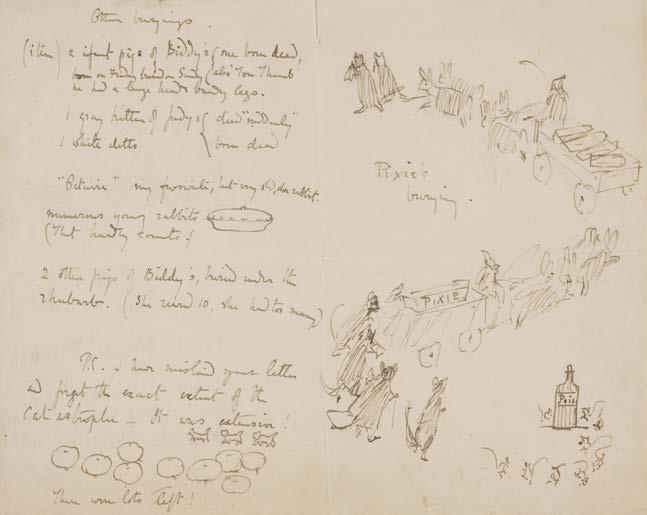 Other buryings.
(item) 2 infant pigs of Biddy's { one born dead,
born on Friday buried on Sunday { also "Tom Thumb"
he had a large head & bandy legs.
1 gray kitten of Judy's { died "suddenly"
1 white ditto { born dead
my favourite, but very old, doe rabbit.
numerous young rabbits
(That hardly counts!)
2 other pigs of Biddy's, buried under the
rhubarb. (She reared 10, she had too many)
P.S. I have mislaid your letter
and forget the exact extent of the
Catastrophe — It was extensive!
There were lots left!
Pixie's
burying.
PIXIE
Pois